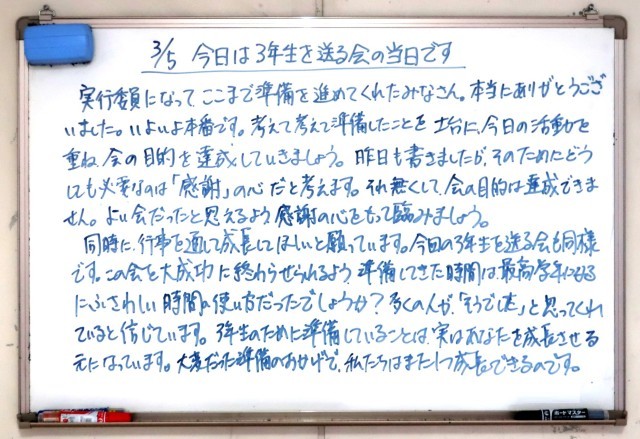 3/5 今日は3年生を送る会の当日です
実行委員になって、ここまで準備を進めてくれたみなさん。本当にありがとうござ
いました。いよいよ本番です。考えて考えて準備したことを土台に、今日の活動を
重ね、会の目的を達成していきましょう。昨日も書きましたが、そのためにどう
しても必要なのは「感謝」の心だと考えます。それ無くして、会の目的は達成できま
せん。よい会だったと思えるよう感謝の心をもって臨みましょう。
同時に、行事を通して成長してほしいと願っています。今回の3年生を送る会も同様
です。この会を大成功に終わらせられるよう、準備してきた時間は最高学年になる
にふさわしい時間の使い方だったでしょうか?多くの人が、「そうでした」と思ってくれ
ていると信じています。3年生のために準備していることは、実はあなたを成長させる
元になっています。大変だった準備のおかげで、私たちはまた1つ成長できるのです。
ボードマスター